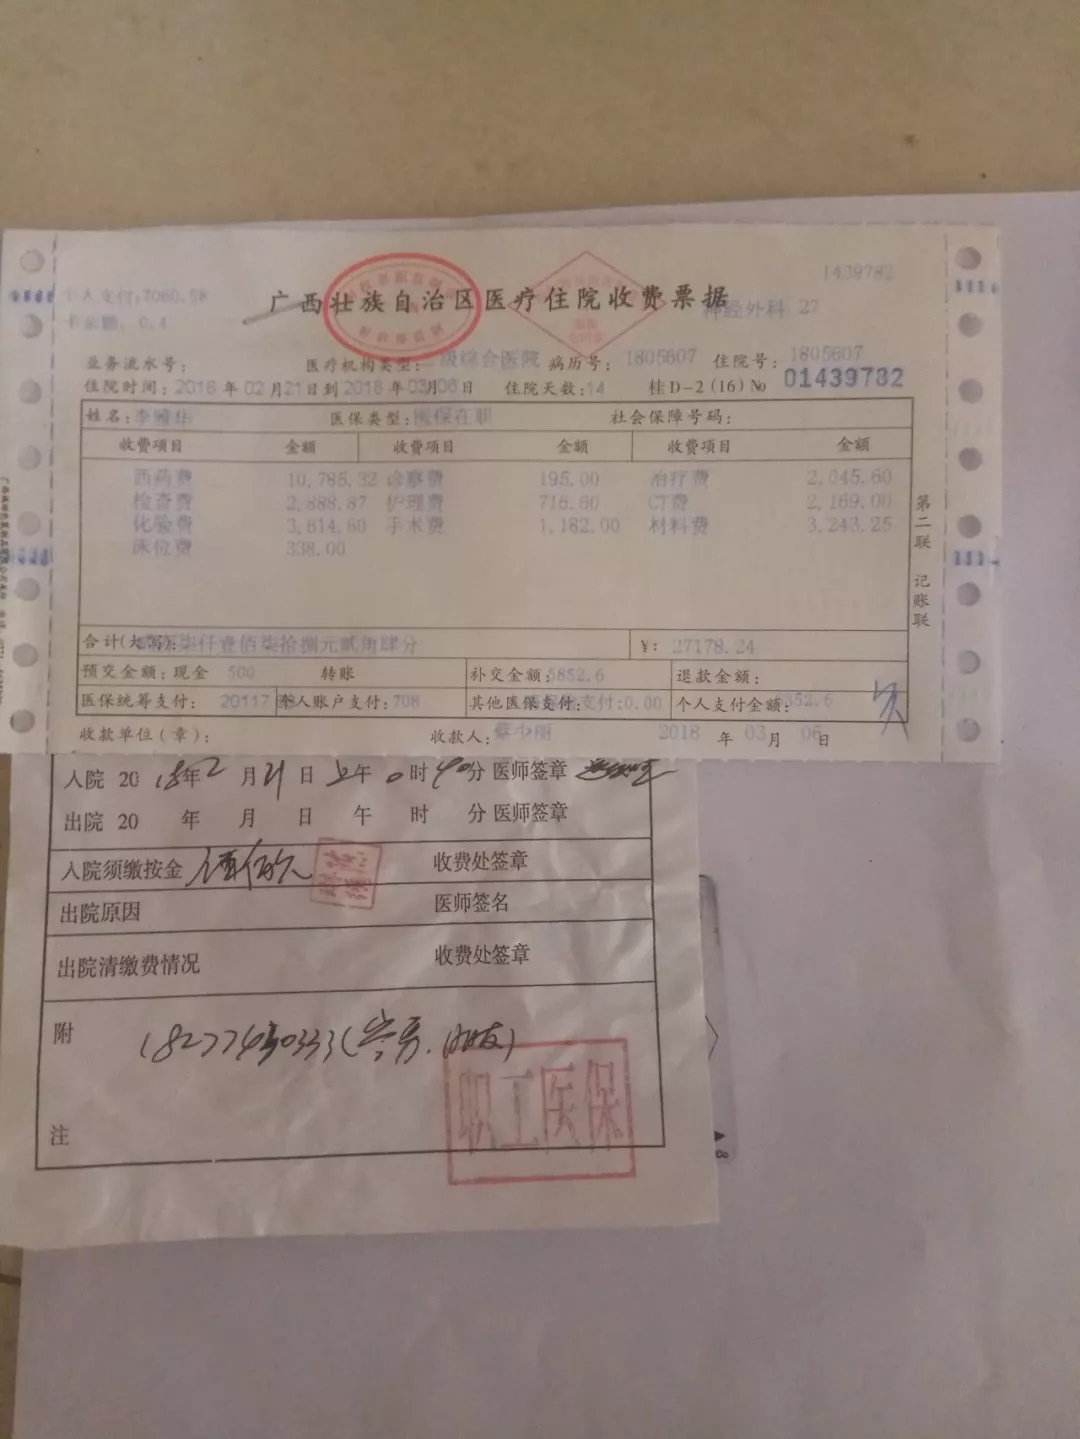 1439782
个人支付:7060.58
广西壮族自治区医疗住院收费票据
卡余额: 0.4
神经外科 27
业务流水号: 医疗机构类型: 二级综合医院 病历号: 1805607 住院号: 1805607
住院时间: 2018 年 02 月 21 日到 2018 年 03 月 06 日 住院天数: 14 桂D-2(16)No 01439782
姓名: 李雅华 医保类型: 医保在职 社会保障号码:
收费项目 金额 收费项目 金额 收费项目 金额
西药费 10,785.32 诊察费 195.00 治疗费 2,045.60
检查费 2,888.87 护理费 716.60 CT费 2,169.00
化验费 3,614.60 手术费 1,182.00 材料费 3,243.25
床位费 338.00
合计(大写): 柒仟壹佰柒拾捌元贰角肆分 ¥: 27178.24
预交金额: 现金 500 转账 补交金额: 5852.6 退款金额:
医保统筹支付: 20117 个人账户支付: 708 其他医保支付: 0.00 个人支付金额: 6352.6
收款单位(章): 收款人: 蔡少丽 2018 年 03 月 06 日
第二联 记账联
入院 20 18 年 2 月 21 日 上午 0 时 40 分 医师签章
出院 20 年 月 日 午 时 分 医师签章
入院须缴按金 收费处签章
出院原因 医师签名
出院清缴费情况 收费处签章
附
注
职工医保